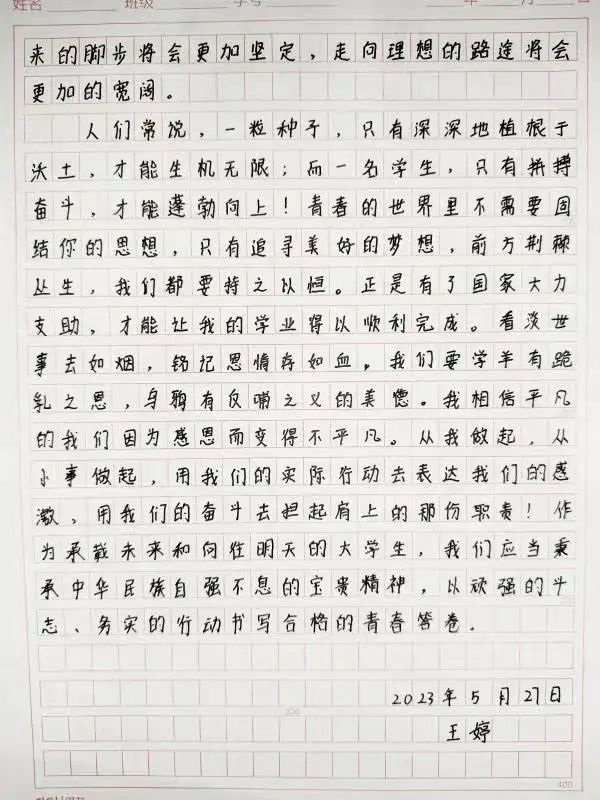 姓名 班级 学号 年 月 日
来的脚步将会更加坚定，走向理想的路途将会
更加的宽阔。
人们常说，一粒种子，只有深深地植根于
沃土，才能生机无限；而一名学生，只有拼搏
奋斗，才能蓬勃向上！青春的世界里不需要固
结你的思想，只有追寻美好的梦想，前方荆棘
丛生，我们都要持之以恒。正是有了国家大力
支助，才能让我的学业得以顺利完成。看淡世
事去如烟，铭记恩情存如血，我们要学羊有跪
乳之恩，乌鸦有反哺之义的美德。我相信平凡
的我们因为感恩而变得不平凡。从我做起，从
小事做起，用我们的实际行动去表达我们的感
激，用我们的奋斗去担起肩上的那份职责！作
为承载未来和向往明天的大学生，我们应当秉
承中华民族自强不息的宝贵精神，以顽强的斗
志、务实的行动书写合格的青春答卷。
300
2023年5月27日
王婷
400